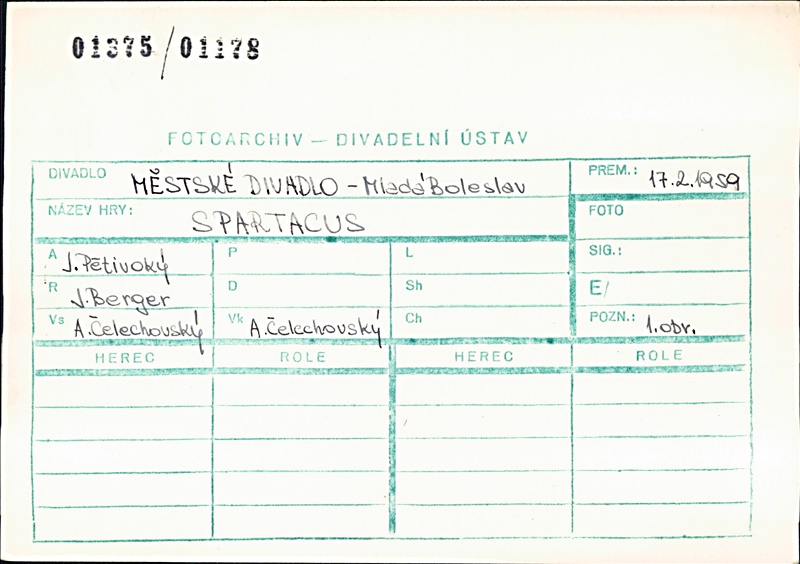 01375/01178
FOTOARCHIV – DIVADELNÍ ÚSTAV
DIVADLO MĚSTSKÉ DIVADLO - Mladá Boleslav
PREM.: 17.2.1959
NÁZEV HRY: SPARTACUS
FOTO
A J. Pětivoký
P
L
SIG.:
R J. Berger
D
Sh
E/
Vs A. Čelechovský
Vk A. Čelechovský
Ch
POZN.: 1. obr.
HEREC ROLE HEREC ROLE